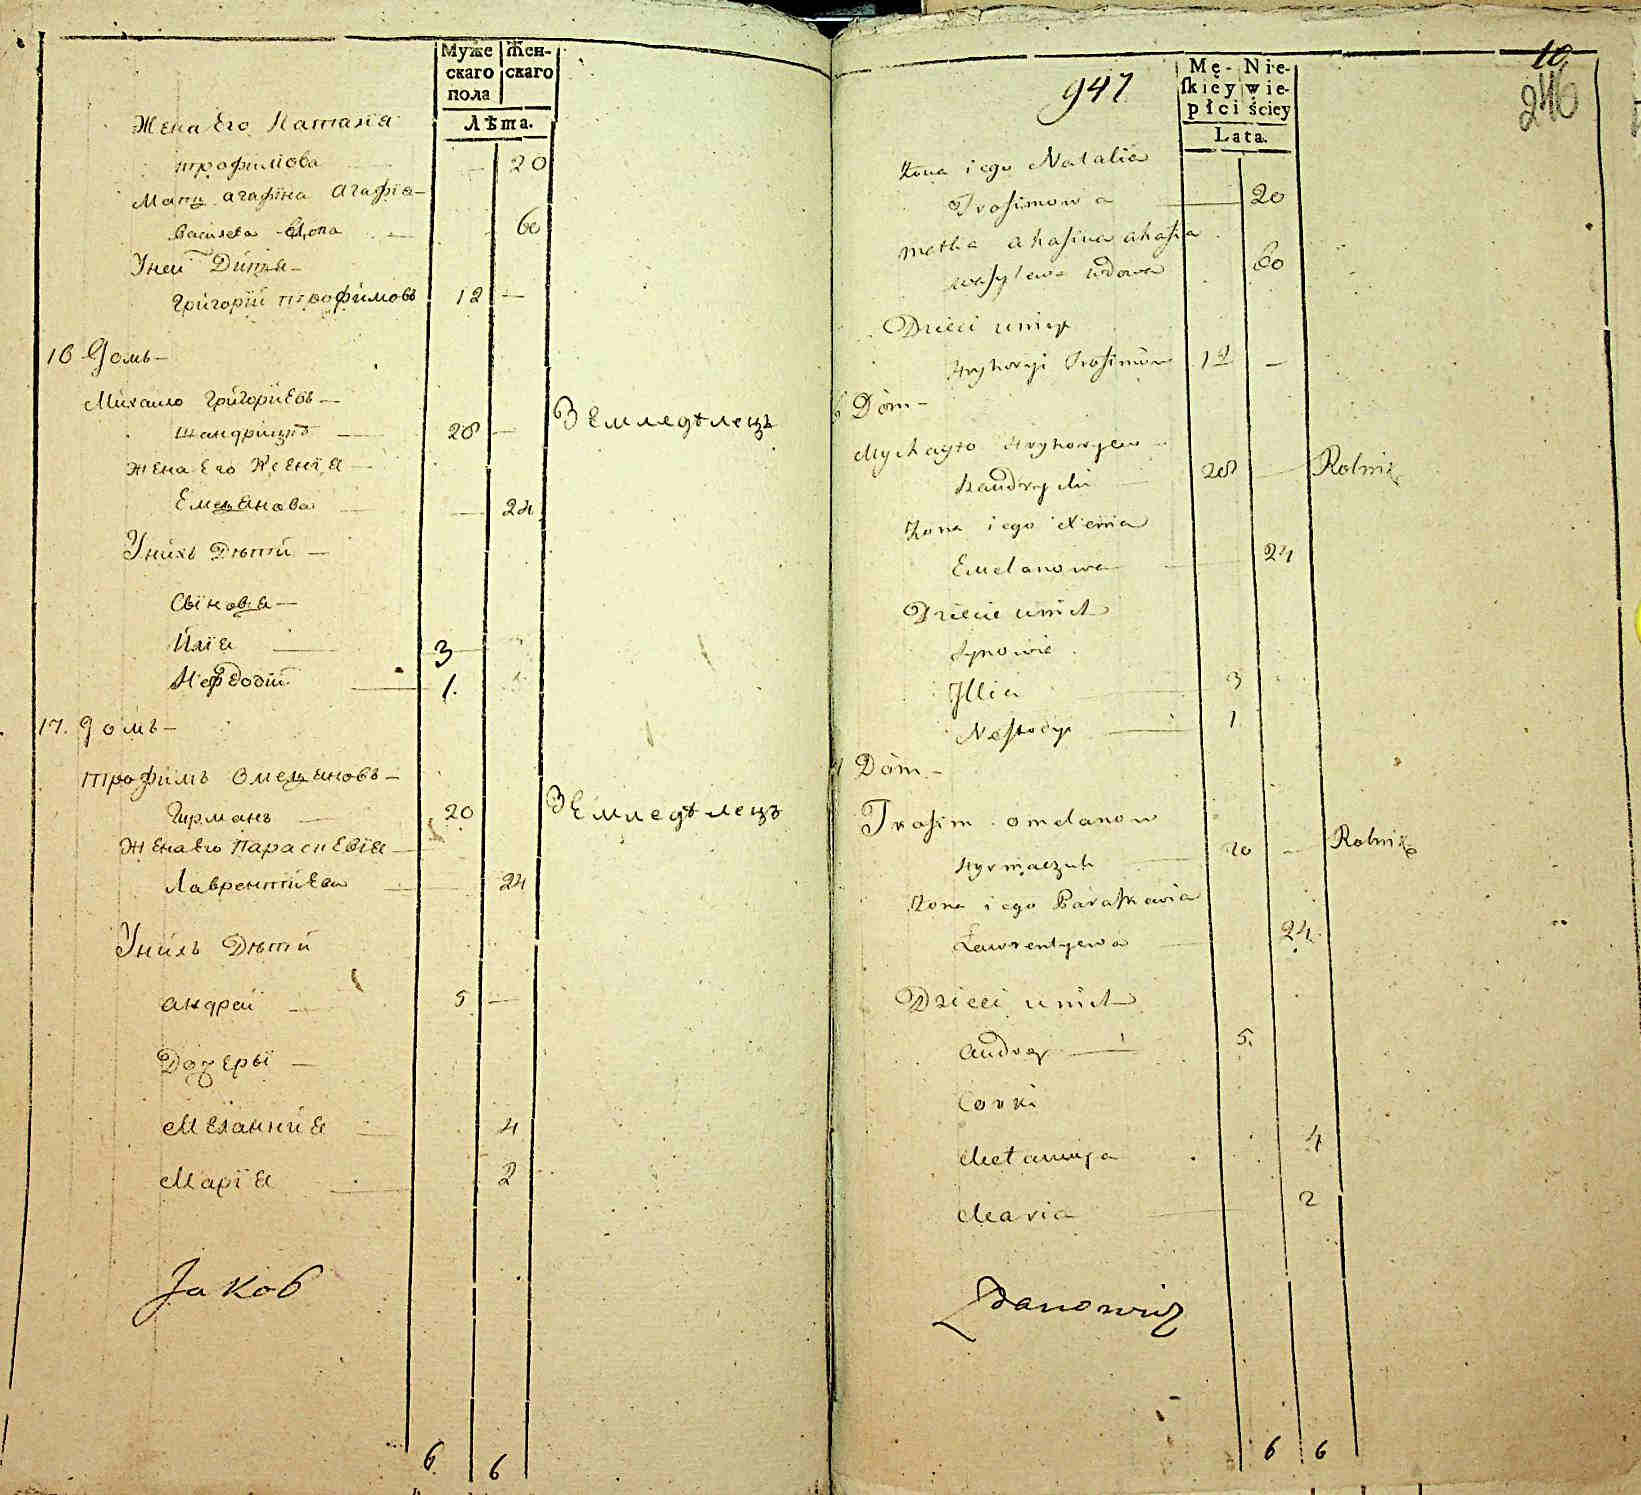 Муже Жен-
скаго скаго
пола
Лѣта.
Жена Его Наталіа
трофимова — 20
Мати агафіна агафіа
Василева вдова 60
Унеи Дитя
Григорїй трофимовъ 12 —
16 Домъ —
Михаило Григориевъ —
шандрицкъ 28 — Земледѣлецъ
жена Его Ксенїа —
Емеляанова — 24
Унихъ Дѣти —
Синовя —
Илїа 3
Нефодїй 1.
17. Домъ —
трофимъ Омеляновъ —
Гирманъ 20 Земледѣлецъ
жена его Параскевїа —
Лаврентиева 24
Унихъ Дѣти
андрей 5 —
Дочеры —
Меланиїа 4
Марїа 2
Jakob
6 6
10
246
947
Mę- Nie-
ſkiey wie-
płci ściey
Lata.
Żona iego Natalia
Trofimowa 20
matka ahafina ahafia
wasylewa wdowa 60
Dzieci uniey
Hryhoryi Trofimow 12 —
6 Dóm —
Mychayło Hryhoryew
Szandrycki 28 — Rolnik
Żona iego Xenia
Emelanowa 24
Dziecie unich
Synowie
Illia 3
Neftody 1
7 Dóm —
Trofim omelanow
Hyrmaczuk 20 — Rolnik
Żona iego Paraſkewia
Lawrentyewa 24
Dzieci unich
andrey 5.
Corki
Melanniya 4
Maria 2
Zdanowicz
6 6